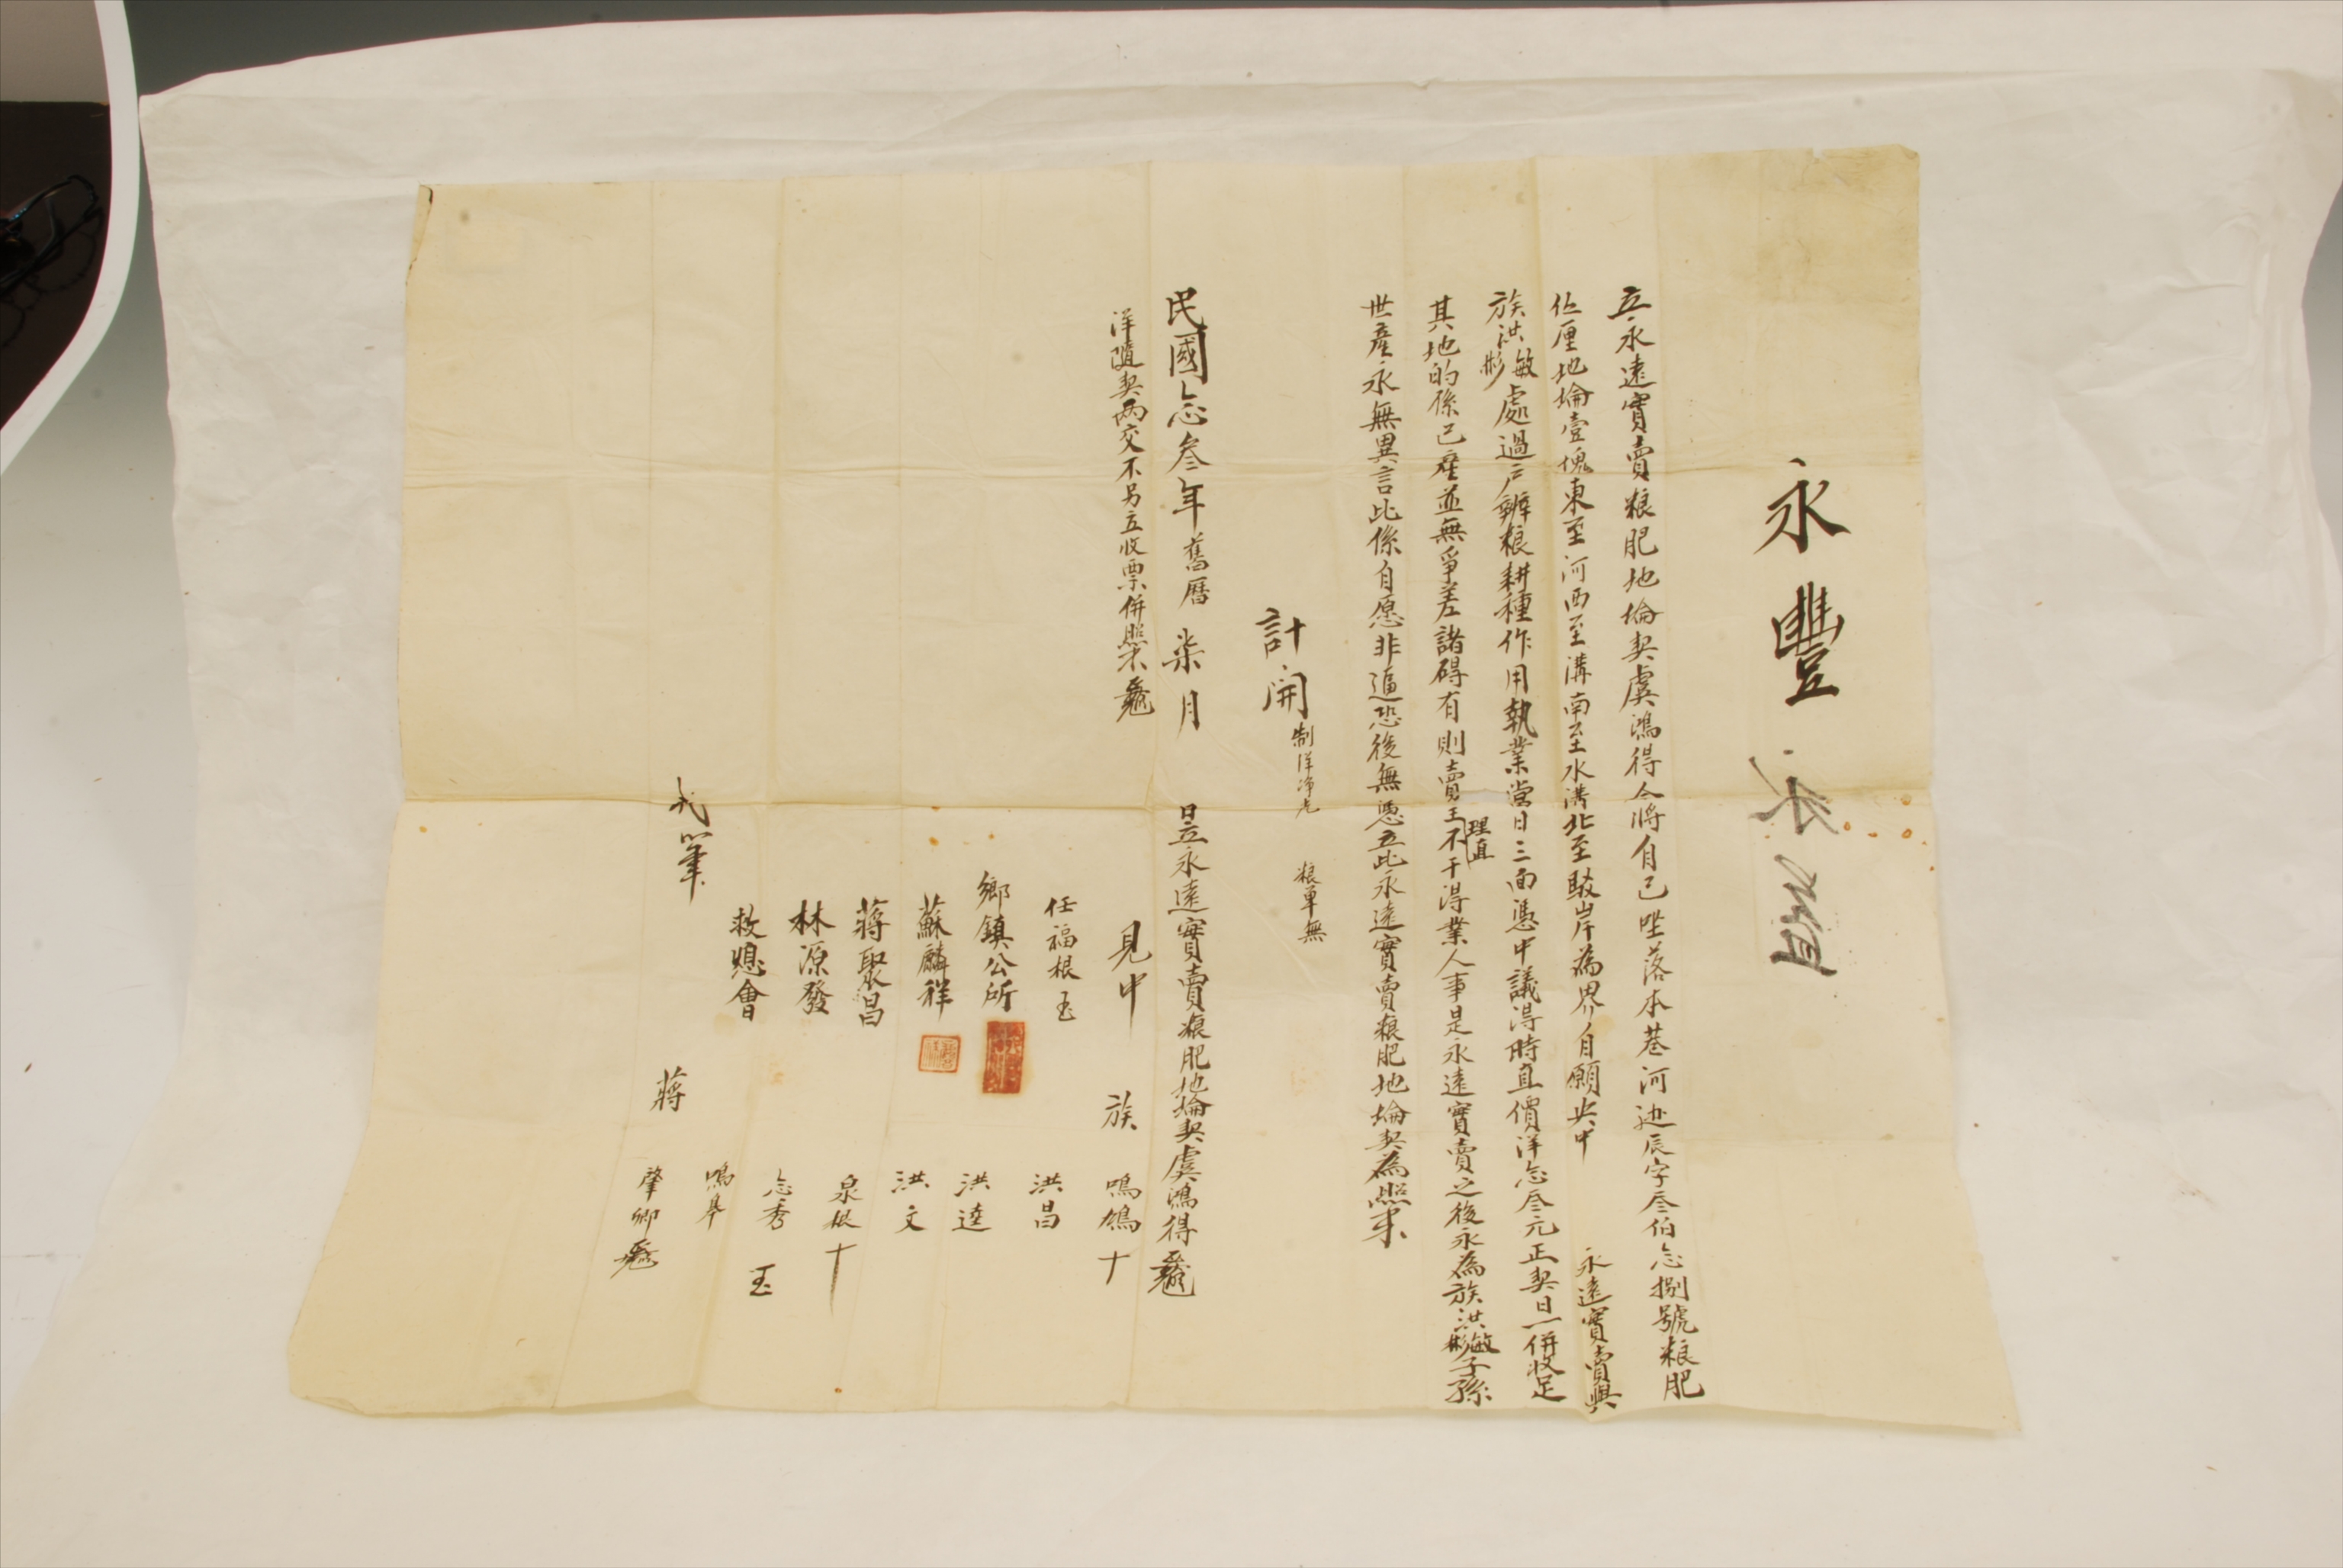 永豐
立永遠實賣粮肥地埨契虞鴻得今將自己坐落本巷河边辰字叁伯念捌號粮肥
伍厘地埨壹塊東至河西至溝南至水溝北至駁岸為界自願央中 永遠實賣與
族洪敏彬處過户辦粮耕種作用執業當日三面憑中議得時直價洋念叁元正契日一併收足
其地的係己産並無爭差諸碍有則賣主理直不干得業人事是永遠實賣之後永為族洪敏彬子孫
世産永無異言此係自愿非逼恐後無憑立此永遠實賣粮肥地埨契為照
計開 制洋净光 粮單無
民國念叁年舊曆柒月 日立永遠實賣粮肥地埨契虞鴻得
洋隨契两交不另立收票併照
見中 族 鳴鴿 十
任福根 洪昌
鄉鎮公所 洪逵
蘇麟祥 洪文
蔣聚昌 泉根 十
林源發 念秀
救熄會 鳴皋
代筆 蔣肇卿